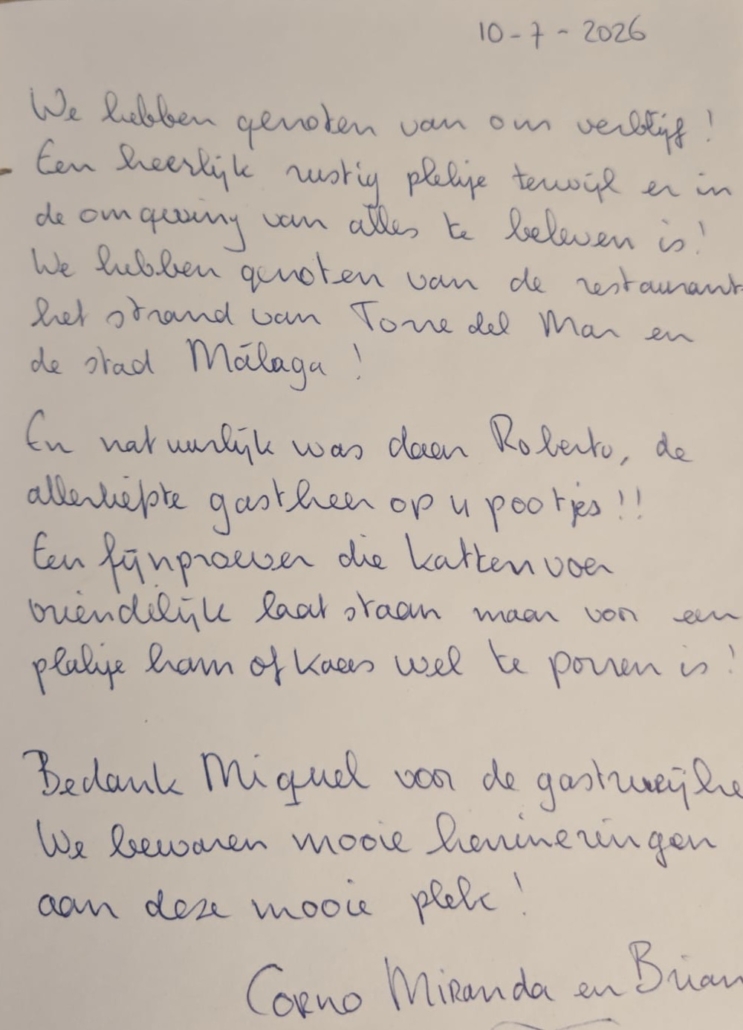 10-7-2026
We hebben genoten van ons verblijf!
Een heerlijk rustig plekje terwijl er in
de omgeving van alles te beleven is!
We hebben genoten van de restaurant
het strand van Torre del Mar en
de stad Málaga!
En natuurlijk was daar Roberto, de
allerliefste gastheer op 4 pootjes!!
Een fijnproever die kattenvoer
vriendelijk laat staan maar voor een
plakje ham of kaas wel te porren is!
Bedankt Miguel voor de gastvrijhe
We bewaren mooie herinneringen
aan deze mooie plek!
Corno Miranda en Brian